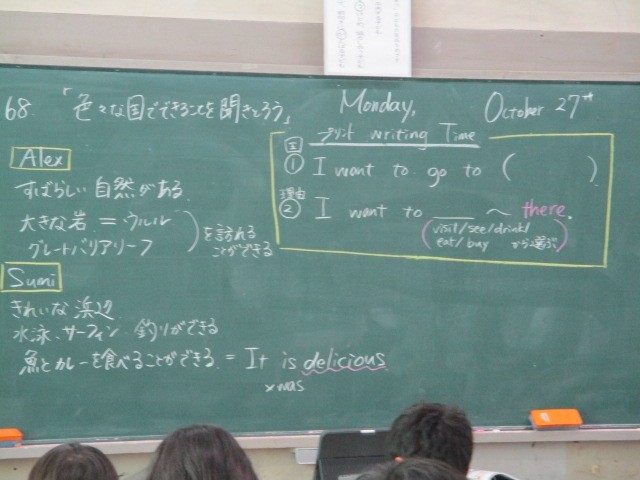 68. 「色々な国でできることを聞きとろう」
Monday, October 27th
Alex
すばらしい自然がある
大きな岩 = ウルル
グレートバリアリーフ
を訪れる
ことができる
Sumi
きれいな浜辺
水泳、サーフィン 釣りができる
魚とカレーを食べることができる = It is delicious
xmas
プリント Writing Time
国
① I want to go to ( )
理由
② I want to ___ ~ there.
(visit/see/drink/
eat/buy から選ぶ)